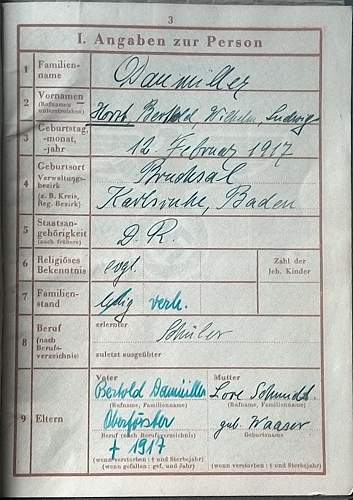 3
I. Angaben zur Person
1 Familien-
name
Daumiller
2 Vornamen
(Rufnamen
unterstreichen)
Horst, Bertold Wilhelm, Ludwig
3 Geburtstag,
-monat,
-jahr
12. Februar 1917
4 Geburtsort
Verwaltungs-
bezirk
(z. B. Kreis,
Reg. Bezirk)
Bruchsal
Karlsruhe, Baden
5 Staatsan-
gehörigkeit
(auch frühere)
D. R.
6 Religiöses
Bekenntnis
evgl.
Zahl der
leb. Kinder
7 Familien-
stand
ledig verh.
8 Beruf
(nach
Berufs-
verzeichnis)
erlernter
Schüler
zuletzt ausgeübter
9 Eltern
Vater
Bertold Daumiller
(Rufname, Familienname)
Oberförster
Beruf (nach Berufsverzeichnis)
† 1917
(wenn verstorben: † und Sterbejahr)
(wenn gefallen: gef. und Jahr)
Mutter
Lore Schmidt
(Rufname, Familienname)
geb. Waaser
Geburtsname
(wenn verstorben: † und Sterbejahr)